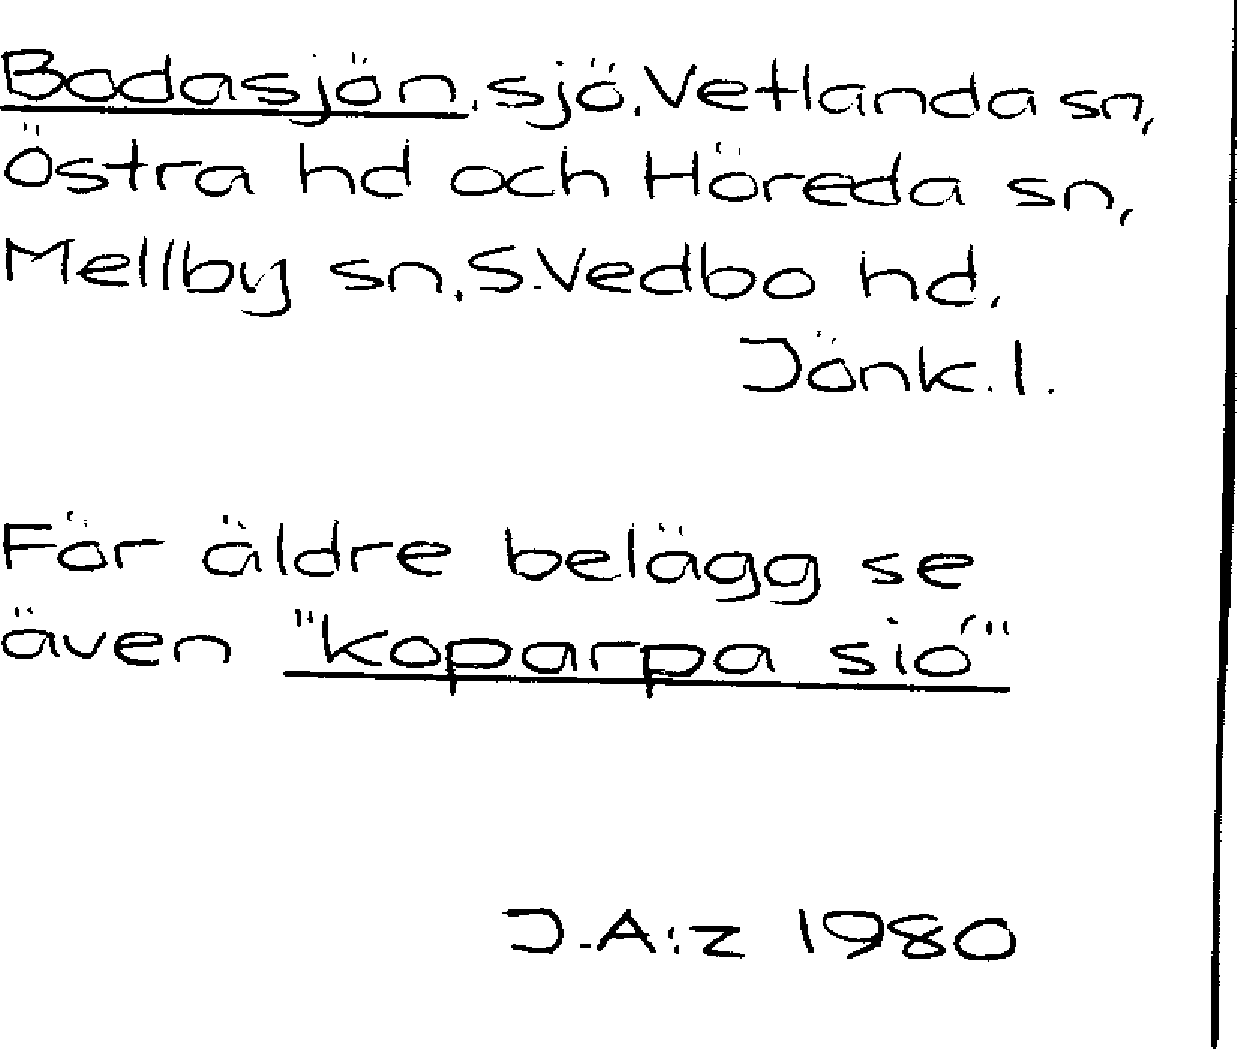 Bodasjön, sjö, Vetlanda sn,
Östra hd och Höreda sn,
Mellby sn, S. Vedbo hd,
Jönk. l.
För äldre belägg se
även "koparpa sió"
J. A:z 1980